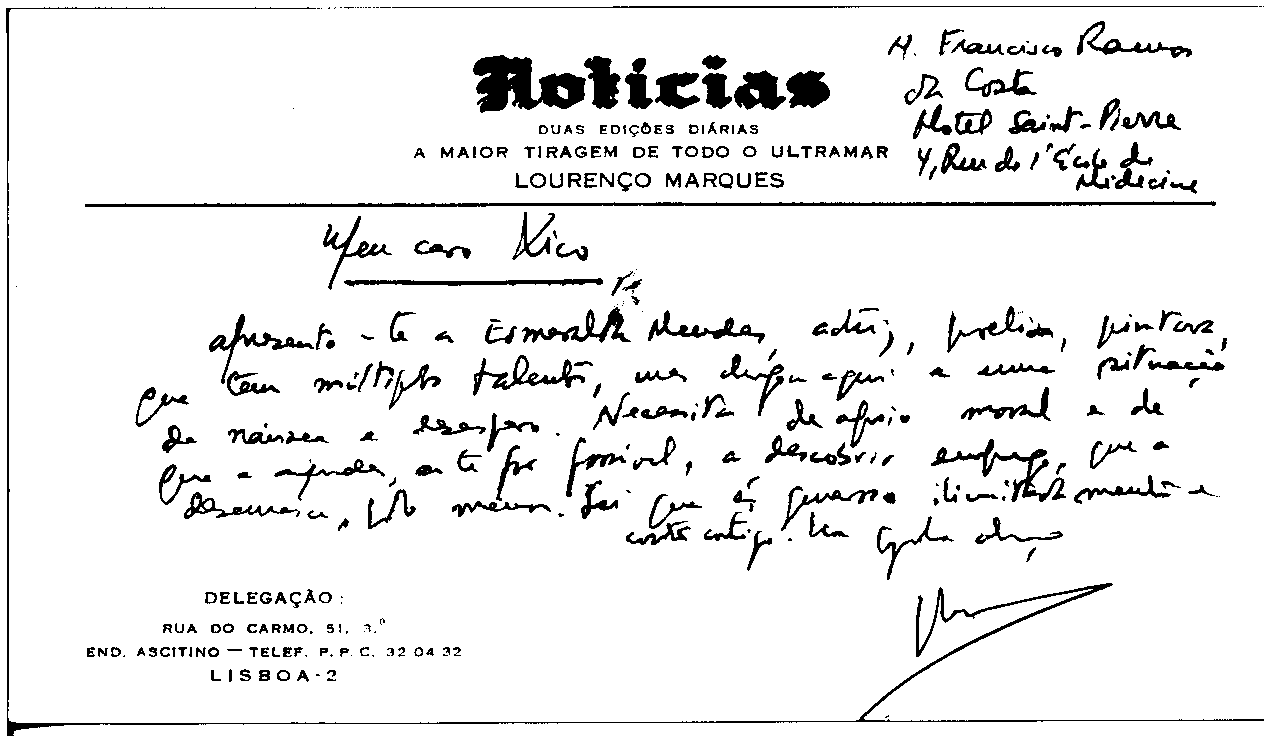 Notícias
DUAS EDIÇÕES DIÁRIAS
A MAIOR TIRAGEM DE TODO O ULTRAMAR
LOURENÇO MARQUES
M. Francisco Ramos
da Costa
Hotel Saint-Pierre
4, Rue de l'École de
Médecine
Meu caro Xico
apresento-te a Esmeralda Mendes, pintora,
que tem múltiplos talentos, mas chegou aqui a uma situação
de náusea e desespero. Necessita de apoio moral e de
que a ajudes, se te for possível, a descobrir emprego, que a
Sei que és generoso ilimitadamente e
conto contigo. Um
DELEGAÇÃO:
RUA DO CARMO, 51, 3.º
END. ASCITINO — TELEF. P. P. C. 32 04 32
LISBOA-2